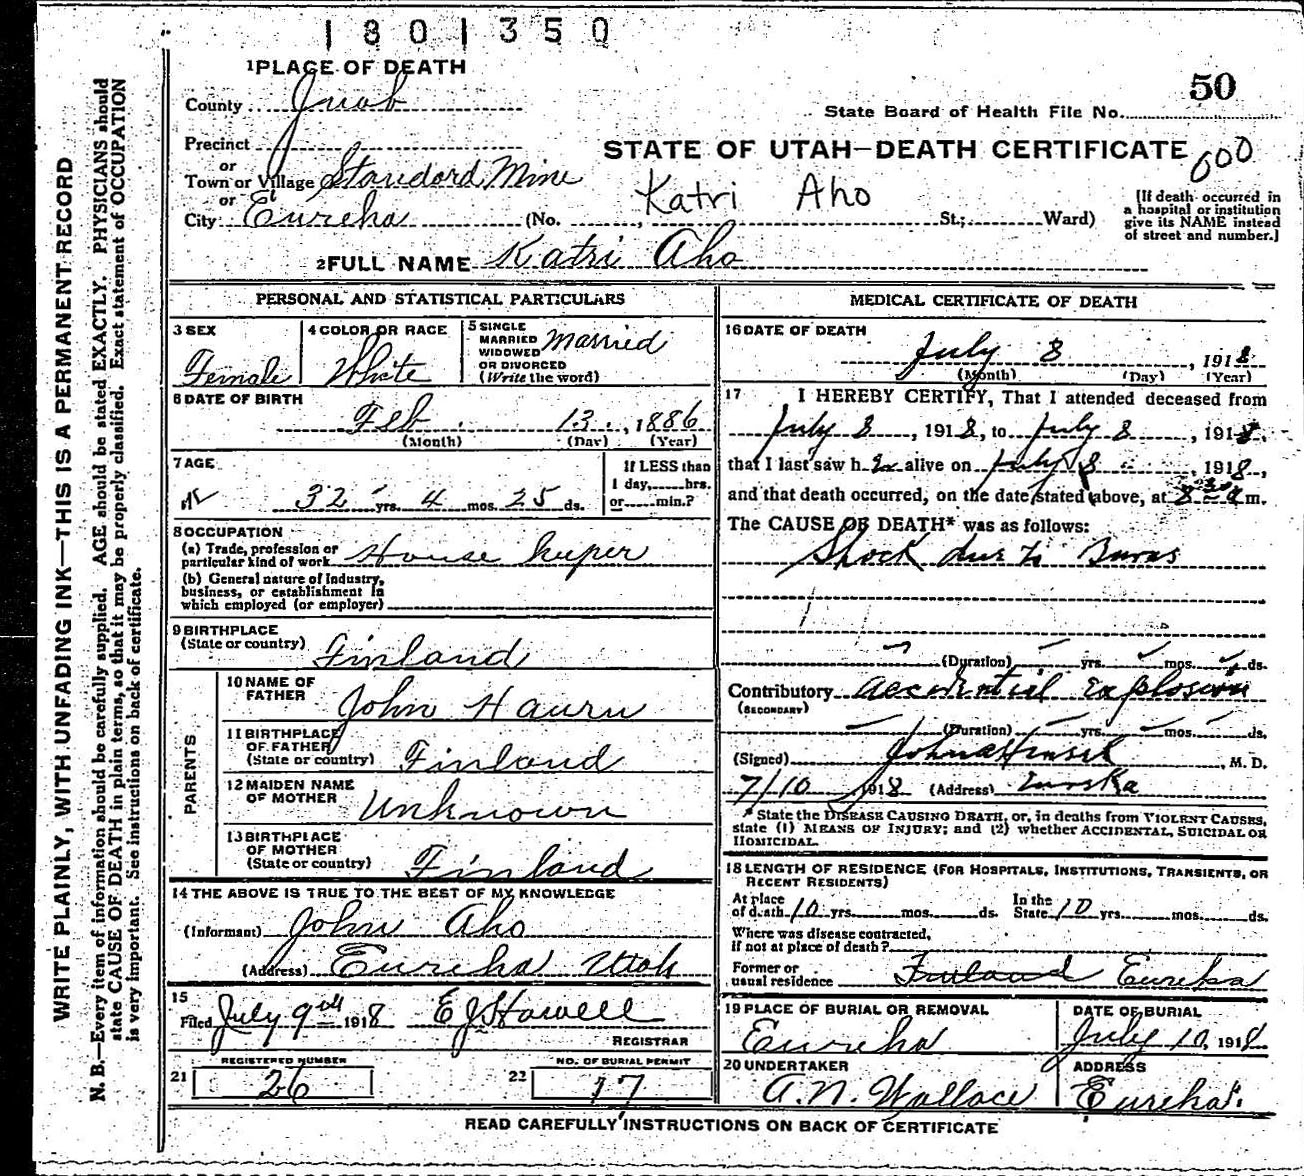 1801350
1 PLACE OF DEATH
County Juab
50
State Board of Health File No.
Precinct
or
STATE OF UTAH—DEATH CERTIFICATE
600
Town or Village Standord Mine
or
Katri Aho
City Eureka (No. , St.; Ward)
[If death occurred in
a hospital or institution
give its NAME instead
of street and number.]
2 FULL NAME Katri Aho
PERSONAL AND STATISTICAL PARTICULARS
3 SEX
Female
4 COLOR OR RACE
White
5 SINGLE
MARRIED
WIDOWED
OR DIVORCED
(Write the word)
Married
6 DATE OF BIRTH
Feb. 13., 1886
(Month) (Day) (Year)
7 AGE
32 yrs. 4 mos. 25 ds.
If LESS than
1 day, hrs.
or min.?
8 OCCUPATION
(a) Trade, profession or
particular kind of work House keeper
(b) General nature of Industry,
business, or establishment in
which employed (or employer)
9 BIRTHPLACE
(State or country) Finland
PARENTS
10 NAME OF
FATHER John Hauru
11 BIRTHPLACE
OF FATHER
(State or country) Finland
12 MAIDEN NAME
OF MOTHER Unknown
13 BIRTHPLACE
OF MOTHER
(State or country) Finland
14 THE ABOVE IS TRUE TO THE BEST OF MY KNOWLEDGE
(Informant) John Aho
(Address) Eureka Utah
15
Filed July 9th 1918 E J Howell
REGISTRAR
REGISTERED NUMBER
21 26
NO. OF BURIAL PERMIT
22 17
MEDICAL CERTIFICATE OF DEATH
16 DATE OF DEATH
July 8, 1918
(Month) (Day) (Year)
17 I HEREBY CERTIFY, That I attended deceased from
July 8, 1918, to July 8, 1918,
that I last saw her alive on July 8, 1918,
and that death occurred, on the date stated above, at 8 30 a m.
The CAUSE OF DEATH* was as follows:
Shock due to Burns
(Duration) yrs. mos. ds.
Contributory accidential Explosion
(SECONDARY)
(Duration) yrs. mos. ds.
(Signed) , M. D.
7/10 1918 (Address) Eureka
* State the DISEASE CAUSING DEATH, or, in deaths from VIOLENT CAUSES,
state (1) MEANS OF INJURY; and (2) whether ACCIDENTAL, SUICIDAL OR
HOMICIDAL.
18 LENGTH OF RESIDENCE (FOR HOSPITALS, INSTITUTIONS, TRANSIENTS, OR
RECENT RESIDENTS)
At place
of death 10 yrs. mos. ds.
In the
State 10 yrs. mos. ds.
Where was disease contracted,
if not at place of death?
Former or
usual residence Finland Eureka
19 PLACE OF BURIAL OR REMOVAL
Eureka
DATE OF BURIAL
July 10, 1918
20 UNDERTAKER
A. N. Wallace
ADDRESS
Eureka
READ CAREFULLY INSTRUCTIONS ON BACK OF CERTIFICATE
WRITE PLAINLY, WITH UNFADING INK—THIS IS A PERMANENT RECORD
N. B.—Every item of information should be carefully supplied. AGE should be stated EXACTLY. PHYSICIANS should
state CAUSE OF DEATH in plain terms, so that it may be properly classified. Exact statement of OCCUPATION
is very important. See instructions on back of certificate.